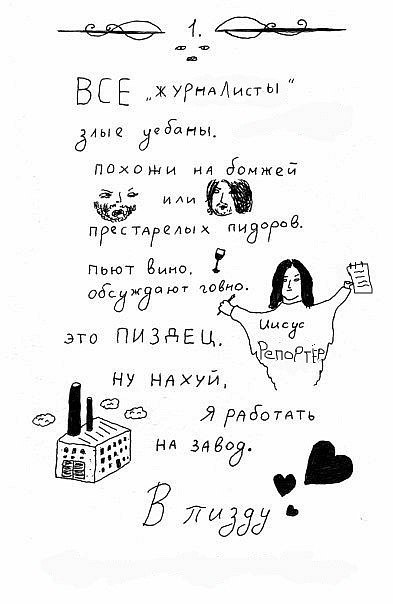 1.
ВСЕ „журналисты“
злые уебаны.
похожи на бомжей
или
престарелых пидоров.
пьют вино,
обсуждают говно.
Иисус
РЕПОРТЁР
это ПИЗДЕЦ.
ну нахуй,
я работать
на завод.
В пизду